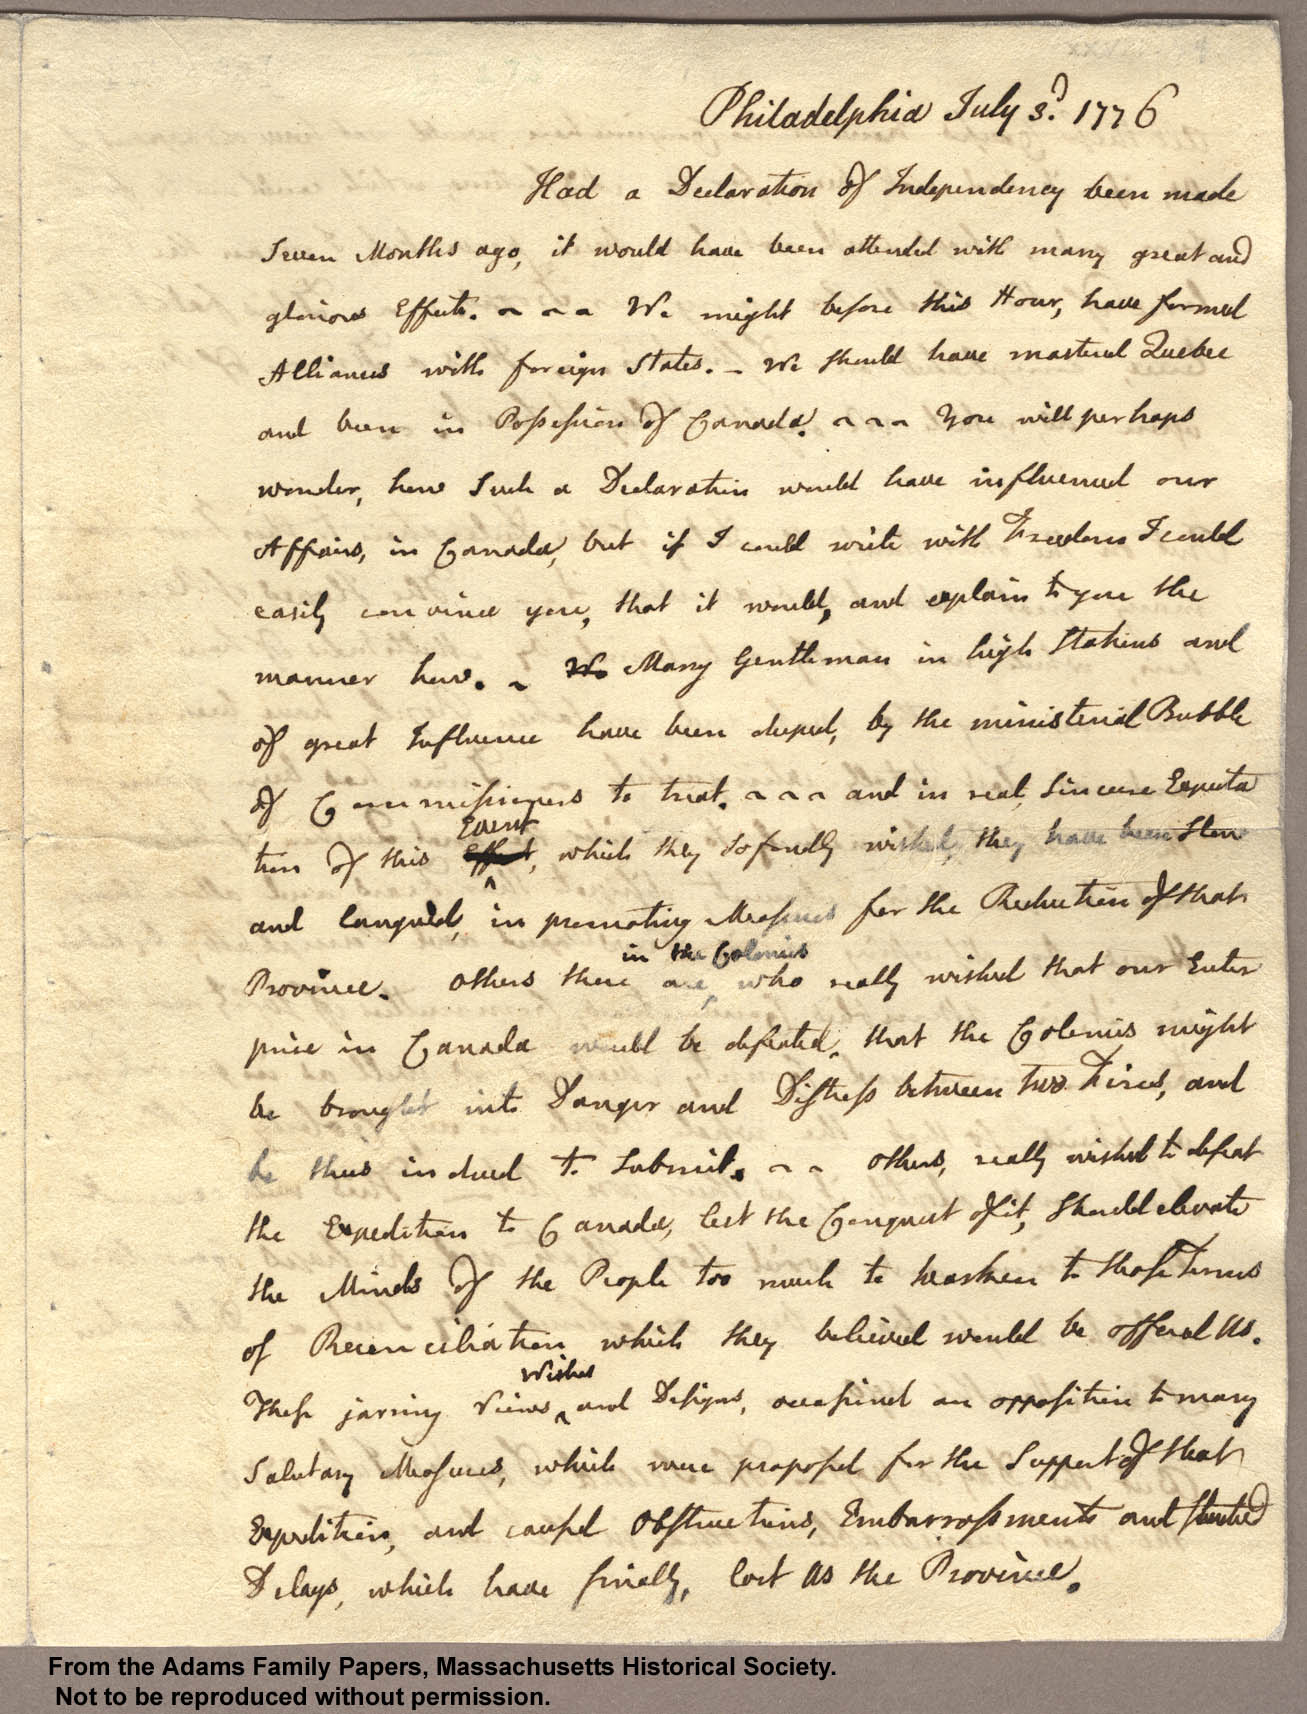 Philadelphia July 3d. 1776
Had a Declaration of Independency been made
seven Months ago, it would have been attended with many great and
glorious Effects. ~ ~ ~ We might before this Hour, have formed
Alliances with foreign States. – We should have mastered Quebec
and been in Possession of Canada. ~ ~ ~ You will perhaps
wonder, how such a Declaration would have influenced our
Affairs, in Canada, but if I could write with Freedom I could
easily convince you, that it would, and explain to you the
manner how. ~ We Many Gentlemen in high Stations and
of great Influence have been duped, by the ministerial Bubble
of Commissioners to treat. ~ ~ ~ and in real, sincere Expecta
Event
tion of this Effort, which they so fondly wished, they have been slow
and languid, in promoting Measures for the Reduction of that
in the Colonies
Province. Others there are, who really wished that our Enter
prise in Canada would be defeated, that the Colonies might
be brought into Danger and Distress between two Fires, and
be thus induced to submit. ~ ~ Others, really wished to defeat
the Expedition to Canada, lest the Conquest of it, should elevate
the Minds of the People too much to hearken to those Terms
of Reconciliation which they believed would be offered Us.
Wishes
These jarring Views and Designs, occasioned an opposition to many
salutary Measures, which were proposed for the Support of that
Expedition, and caused Obstructions, Embarrassments and studied
Delays, which have finally, lost Us the Province.
From the Adams Family Papers, Massachusetts Historical Society.
Not to be reproduced without permission.